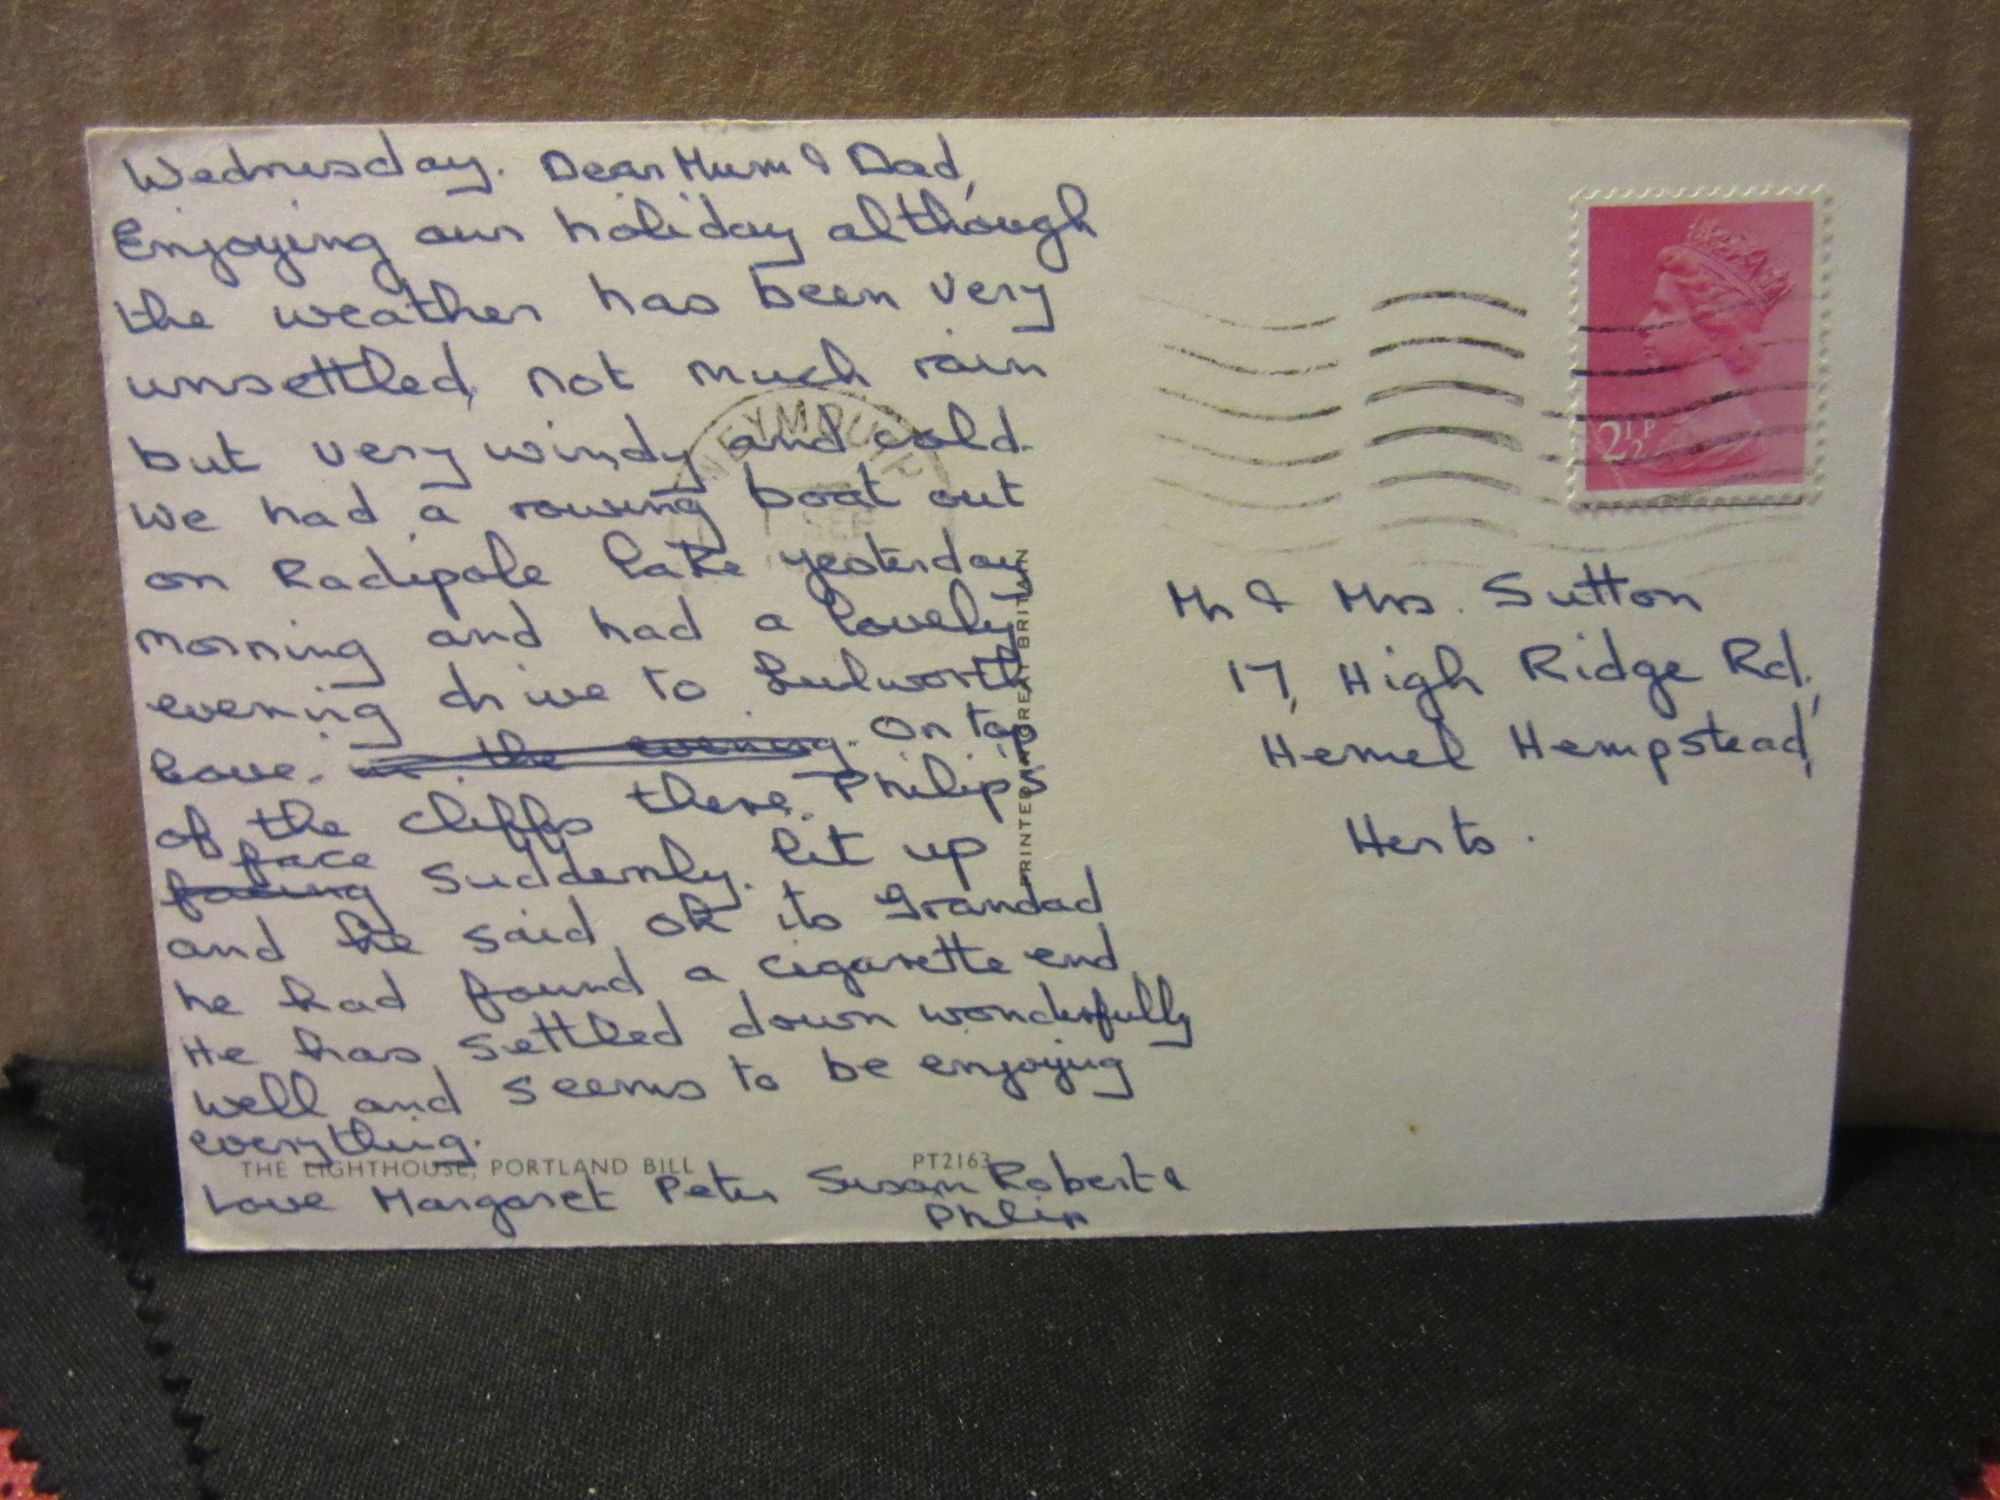 Wednesday. Dear Mum & Dad,
Enjoying our holiday although
the weather has been very
unsettled, not much rain
but very windy and cold.
We had a rowing boat out
on Radipole Lake yesterday
morning and had a lovely
evening drive to Lulworth
Cove. in the evening. On top
of the cliffs there. Philip's
face
facing suddenly. lit up
and he said ok its Grandad
he had found a cigarette end
He has settled down wonderfully
well and seems to be enjoying
everything.
THE LIGHTHOUSE, PORTLAND BILL PT2163
Love Margaret Peter Susan Robert &
Philip
PRINTED IN GREAT BRITAIN
WEYMOUTH
SEP
2½P
Mr & Mrs. Sutton
17, High Ridge Rd,
Hemel Hempstead,
Herts.